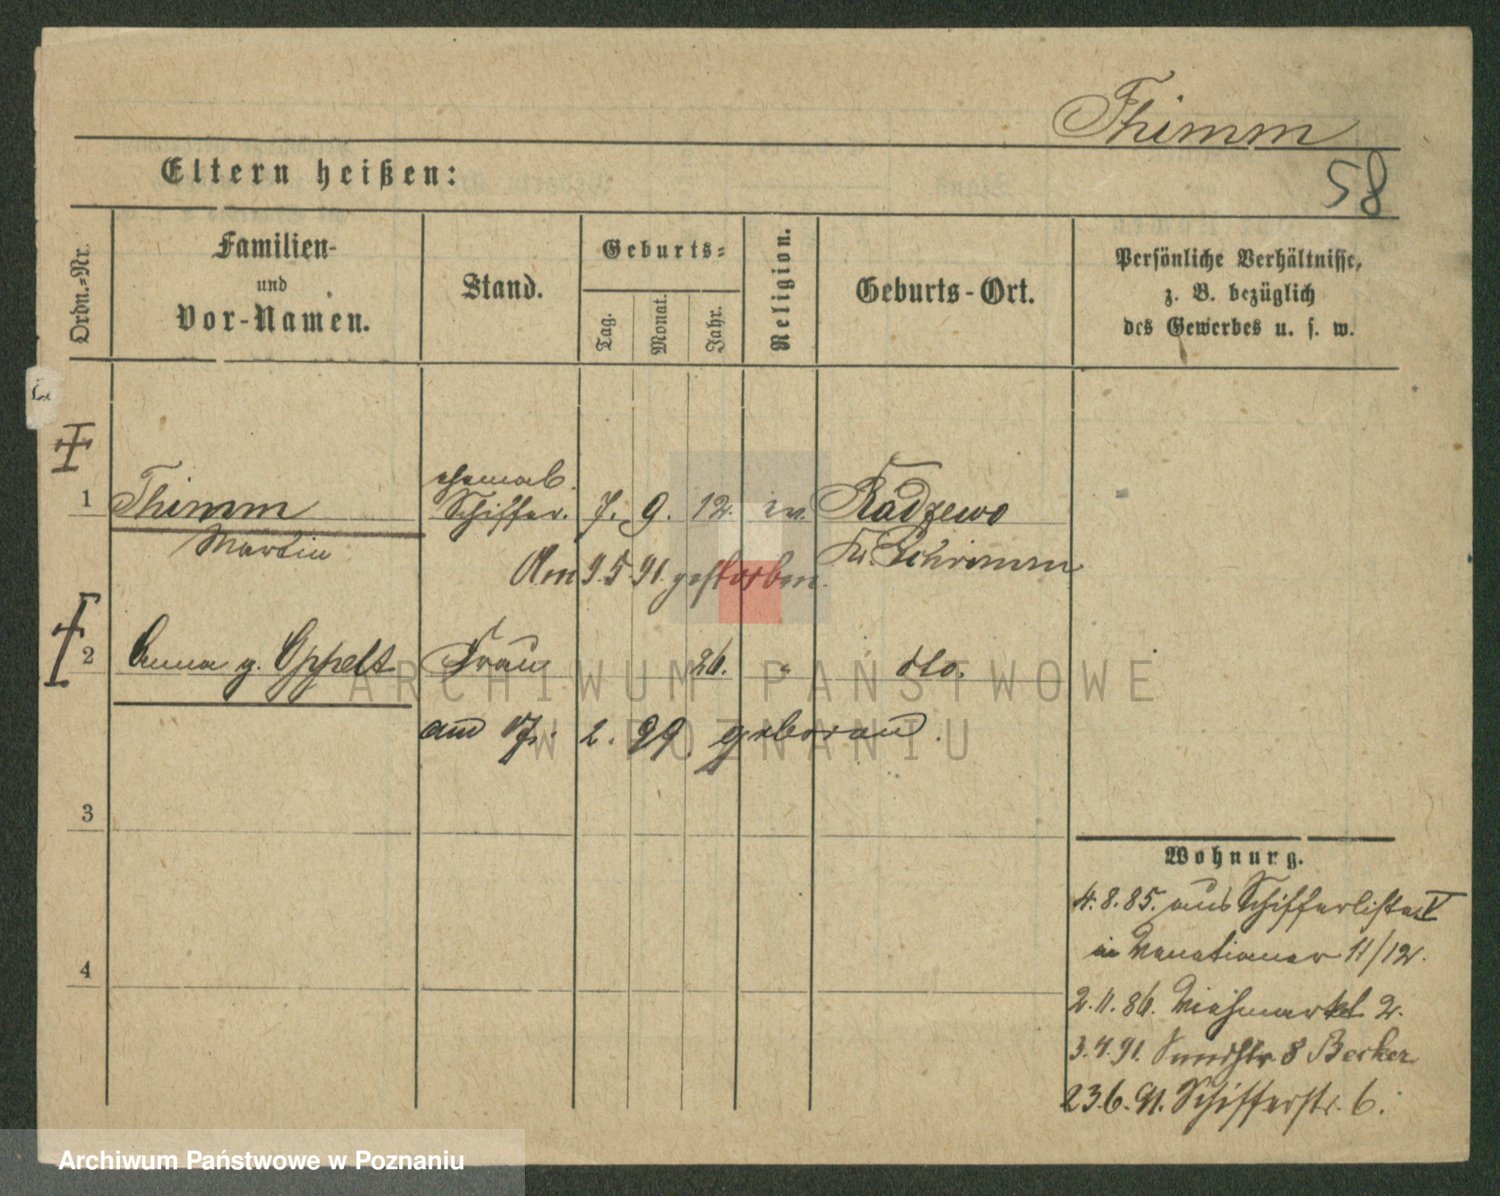 Thimm
58
Eltern heißen:
Ordn.-Nr.
Familien-
und
Vor-Namen.
Stand.
Geburts-
Tag.
Monat.
Jahr.
Religion.
Geburts-Ort.
Persönliche Verhältnisse,
z. B. bezüglich
des Gewerbes u. s. w.
1 Thimm
Martin
ehemal.
Schiffer. 7. 9. 12. ev. Radzewo
Kr. Schrimm
Am 9.5 91. gestorben.
2 Anna g. Oppelt Frau 26. " dto.
am 17. 2. 99
3
4
Wohnung.
4. 8. 85. aus Schifferliste V
in Venetianer 11/12.
2. 11. 86. Viehmarkt 2.
3. 4. 91. 8 Becker
23. 6. 91. Schifferstr. 6.
ARCHIWUM PAŃSTWOWE
W POZNANIU
Archiwum Państwowe w Poznaniu